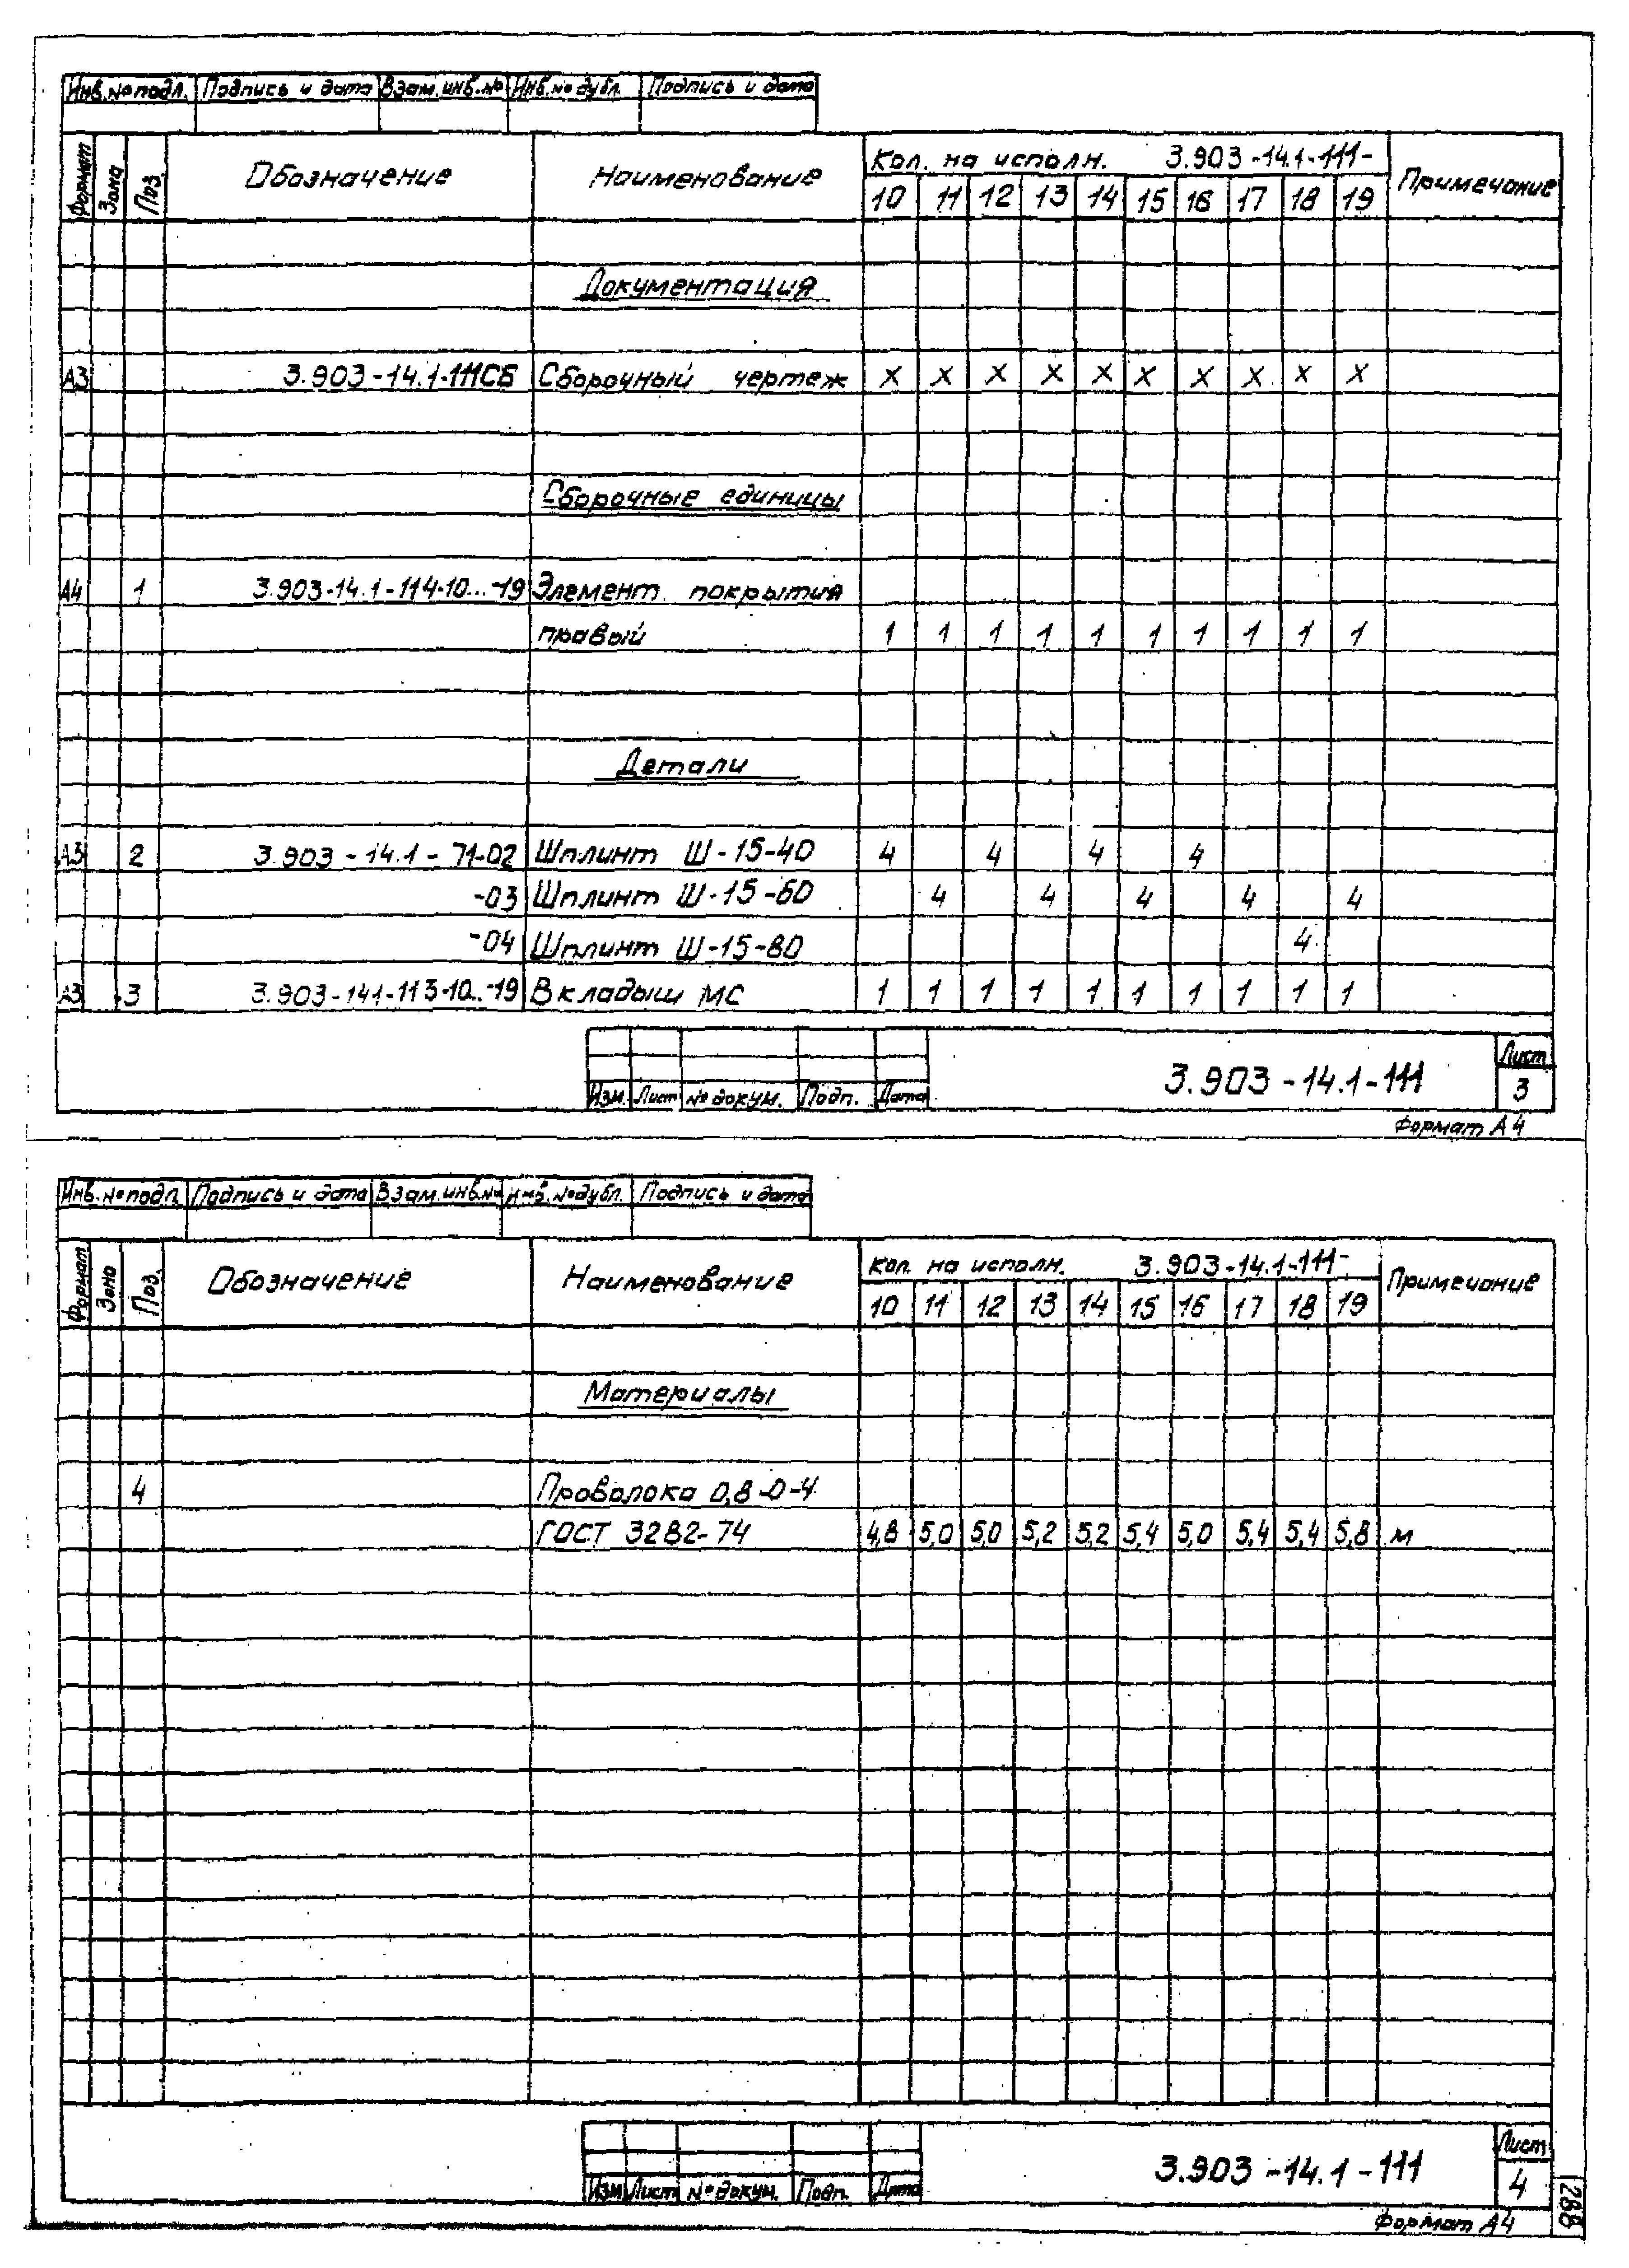 Инв.№подл. Подпись и дата Взам.инв.№ Инв.№дубл. Подпись и дата
Формат Зона Поз. Обозначение Наименование Кол. на исполн. 3.903-14.1-111- Примечание
10 11 12 13 14 15 16 17 18 19
Документация
А3 3.903-14.1-111СБ Сборочный чертеж х х х х х х х х х х
Сборочные единицы
А4 1 3.903-14.1-114-10...-19 Элемент покрытия
правый 1 1 1 1 1 1 1 1 1 1
Детали
А3 2 3.903-14.1-71-02 Шплинт Ш-15-40 4 4 4 4
-03 Шплинт Ш-15-60 4 4 4 4 4
-04 Шплинт Ш-15-80 4
А3 3 3.903-14.1-113-10...-19 Вкладыш МС 1 1 1 1 1 1 1 1 1 1
Изм. Лист №докум. Подп. Дата 3.903-14.1-111 Лист 3
Формат А4
Инв.№подл. Подпись и дата Взам.инв.№ Инв.№дубл. Подпись и дата
Формат Зона Поз. Обозначение Наименование Кол. на исполн. 3.903-14.1-111- Примечание
10 11 12 13 14 15 16 17 18 19
Материалы
4 Проволока 0,8-0-4
ГОСТ 3282-74 4,8 5,0 5,0 5,2 5,2 5,4 5,0 5,4 5,4 5,8 м
Изм Лист №докум. Подп. Дата 3.903-14.1-111 Лист 4
Формат А4
288